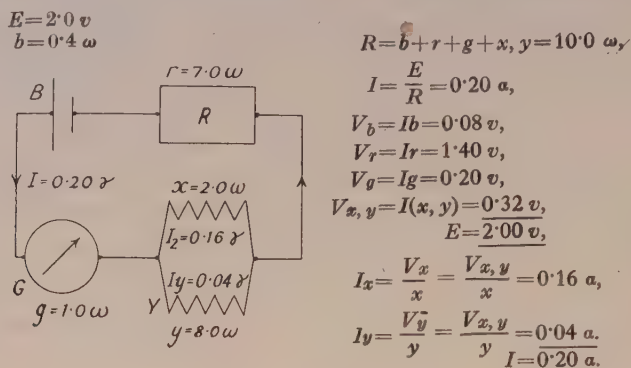 E=2·0 v
b=0·4 ω
B
r=7·0 ω
R
I=0·20 γ
x=2·0 ω
I₂=0·16 γ
Iy=0·04 γ
G
g=1·0 ω
Y
y=8·0 ω
R=b+r+g+x, y=10·0 ω,
I=E/R=0·20 a,
V_b=Ib=0·08 v,
V_r=Ir=1·40 v,
V_g=Ig=0·20 v,
V_{x, y}=I(x, y)=0·32 v,
E=2·00 v,
I_x=V_x/x=V_{x, y}/x=0·16 a,
I_y=V_y/y=V_{x, y}/y=0·04 a.
I=0·20 a.